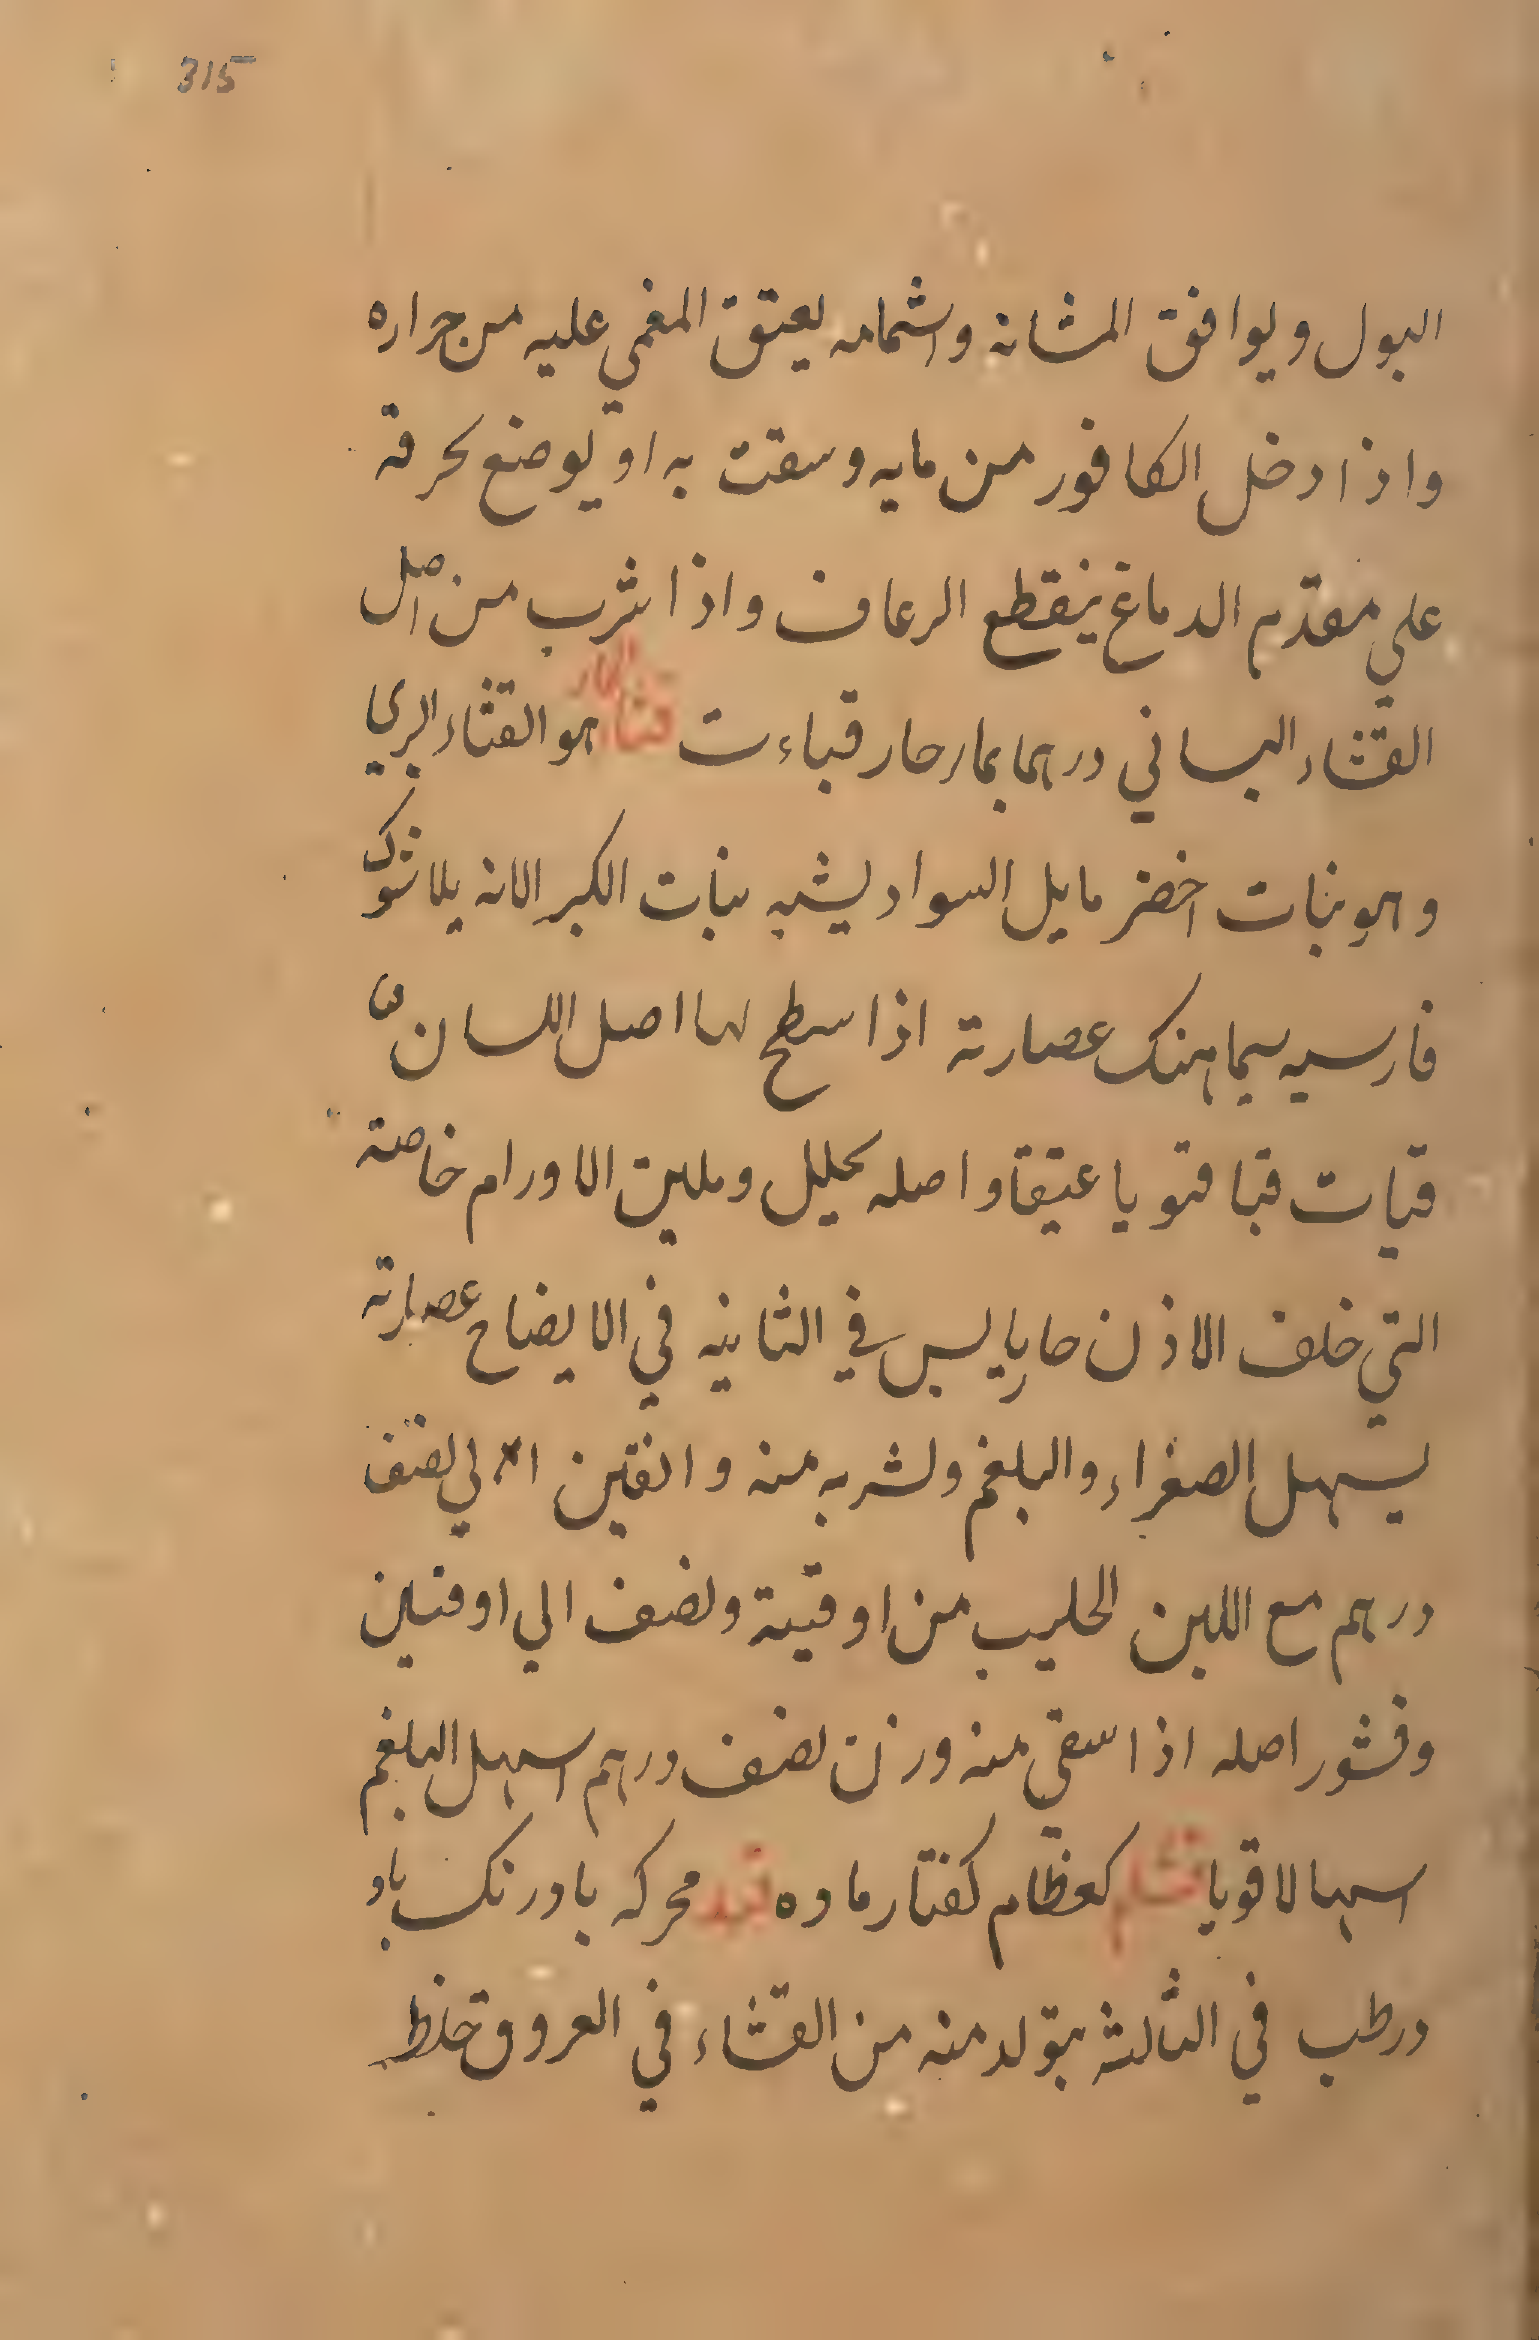 315
البول ويوافق المثانة واشمامه يعتق المغمي عليه من حراره
واذا دخل الكافور من مايه وسقت به او يوضع بحرقة
علي مقدم الدماغ ينقطع الرعاف واذا شرب من اصل
القثاء البساني درهما بمارحار قباءت قثا الحمار هو القثاء البري
وهو نبات اخضر مايل السواد يشبه نبات الكبر الا انه بلا شوك
فارسيه سيماهنك عصارته اذا سطح لها اصل اللسان
قيات قيا قتويا عتيقا واصله يحلل وملين الاورام خاصته
التي خلف الاذن حار يابس في الثانيه في الايضاح عصارته
يسهل الصفراء والبلغم وشربه منه وانقين الي نصف
درهم مع اللبن الحليب من اوقية ونصف الي اوقتين
وقشور اصله اذا سقي منه وزن نصف درهم اسهل البلغم
اسهالا قويا قثام كعظام كفتار ماده قثد محركه بادرنك بارد
ورطب في الثالثه يتولد منه من القثاء في العروق خلط